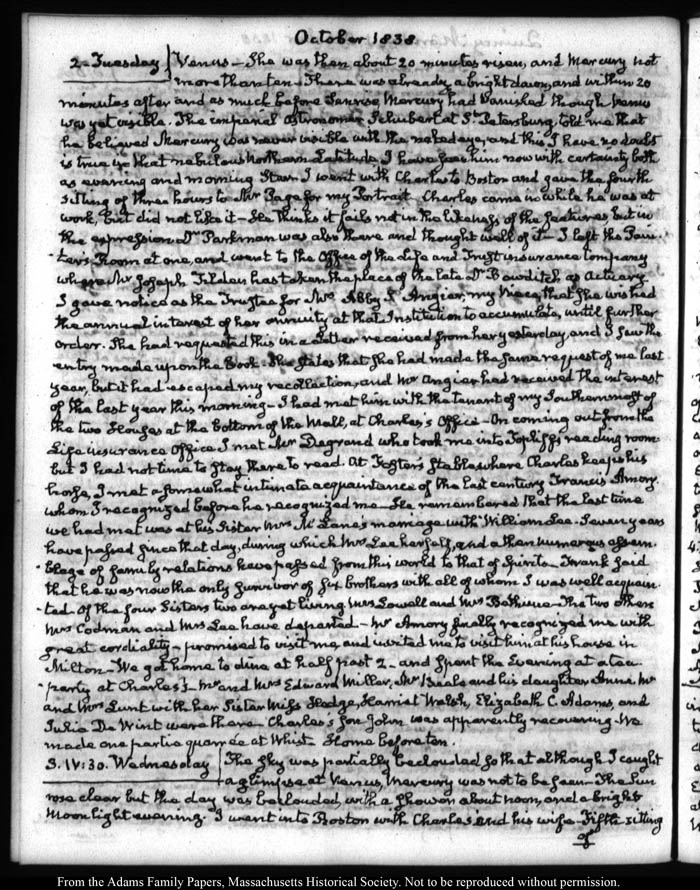 October 1838
2. Tuesday Venus — She was then about 20 minutes risen, and Mercury not
more than ten — There was already a bright dawn, and within 20
minutes after and as much before Sunrise, Mercury had vanished though Venus
was yet visible. The imperial astronomer Schubert at St. Petersburg, told me that
he believed Mercury was never visible with the naked eye, and this I have no doubt
is true in that nebulous Northern Latitude, I have seen him now with certainty both
as evening and morning Star. I went with Charles to Boston and gave the fourth
sitting of three hours to Mr Page for my Portrait. Charles came in while he was at
work, but did not like it — He thinks it fails not in the likeness of the features but in
the expression. Dr Parkman was also there and thought well of it — I left the Pain-
ter's Room at one, and went to the Office of the Life and Trust insurance Company
where Mr Joseph Tilden has taken the place of the late Dr Bowditch as Actuary.
I gave notice as the Trustee for Mrs Abby S. Angier, my Niece, that she wished
the annual interest of her annuity at that Institution to accumulate, until further
order. She had requested this in a Letter received from her yesterday, and I saw the
entry made upon the Book. She states that she had made the same request of me last
year, but it had escaped my recollection, and Mr Angier had received the interest
of the last year this morning — I had met him with the tenant of my Southernmost of
the two Houses at the bottom of the Mall, at Charles's Office — On coming out from the
Life insurance Office I met Mr Degrand who took me into Topliff's reading room
but I had not time to stay there to read. At Foster's Stable where Charles keeps his
horse, I met a somewhat intimate acquaintance of the last century Francis Amory.
whom I recognized before he recognized me — He remembered that the last time
we had met was at his Sister Mrs McLane's marriage with William Lee. Seven years
have passed since that day, during which Mrs Lee herself, and a then numerous assem-
blage of family relations have passed from this world to that of Spirits — Frank said
that he was now the only survivor of six brothers with all of whom I was well acquain-
ted. Of the four Sisters two are yet living Mrs Lowell and Mrs Bethune — The two others
Mrs Codman and Mrs Lee have departed — Mr Amory finally recognized me with
great cordiality — promised to visit me and invited me to visit him at his house in
Milton — We got home to dine at half past 2 — and spent the Evening at a tea
party at Charles's — Mr and Mrs Edward Miller, Mr Beale and his daughter Anne, Mr
and Mrs Lunt with her Sister Miss Hedge, Harriet Welsh, Elizabeth C. Adams, and
Julia De Wint were there — Charles's Son John was apparently recovering — We
made one partie quarrée at Whist — Home before ten.
3. IV:30. Wednesday The Sky was partially beclouded so that although I caught
a glimpse at Venus, Mercury was not to be seen — The Sun
rose clear but the day was beclouded, with a Shower about noon, and a bright
Moonlight evening. I went into Boston with Charles and his wife — Fifth sitting
of
From the Adams Family Papers, Massachusetts Historical Society. Not to be reproduced without permission.